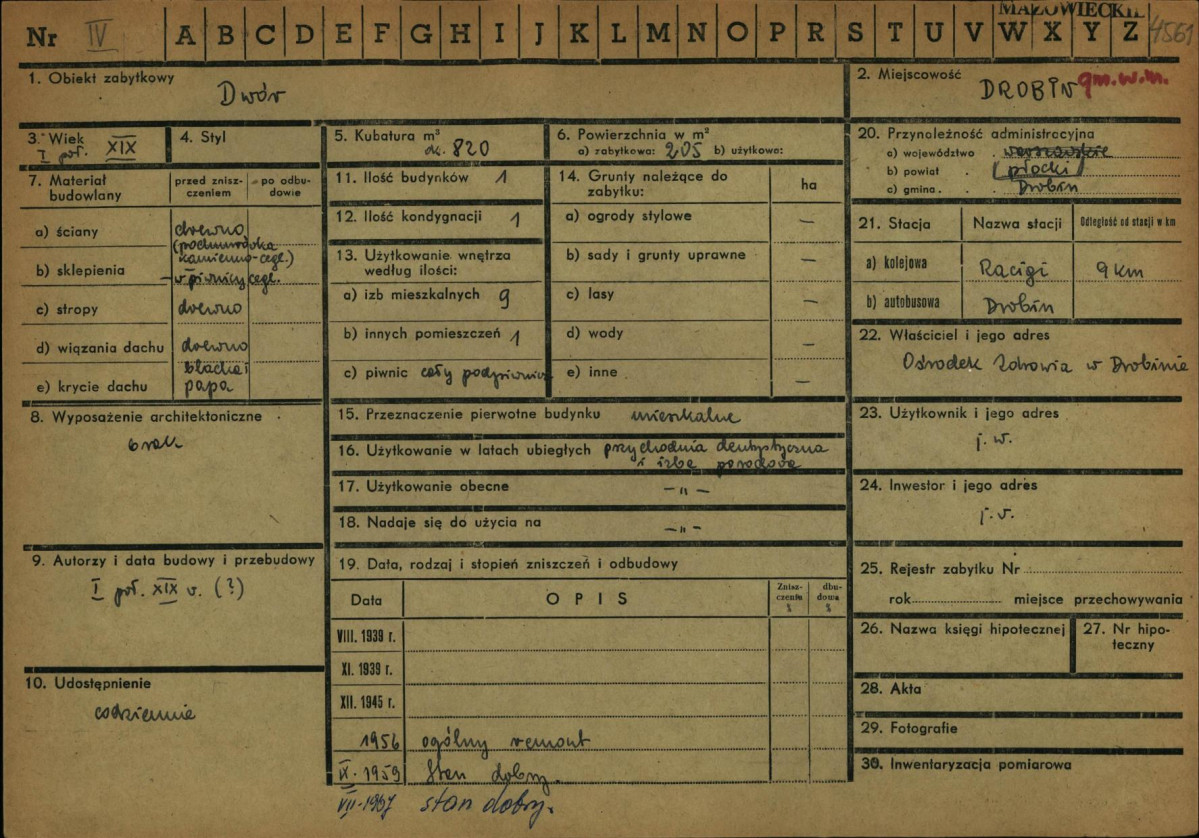 MAZOWIECKIE
Nr IV A B C D E F G H I J K L M N O P R S T U V W X Y Z 4561
1. Obiekt zabytkowy
Dwór
2. Miejscowość
DROBIN gm.w.m.
3. Wiek
I poł. XIX
4. Styl
5. Kubatura m³
ok. 820
6. Powierzchnia w m²
a) zabytkowa: 205 b) użytkowa:
7. Materiał budowlany
przed znisz-
czeniem
po odbu-
dowie
a) ściany drewno
(podmurówka
kamienno-cegl.)
b) sklepienia – w piwnicy cegl.
c) stropy drewno
d) wiązania dachu drewno
e) krycie dachu blacha i
papa
8. Wyposażenie architektoniczne
brak
9. Autorzy i data budowy i przebudowy
I poł. XIX w. (?)
10. Udostępnienie
codziennie
11. Ilość budynków 1
12. Ilość kondygnacji 1
13. Użytkowanie wnętrza
według ilości:
a) izb mieszkalnych 9
b) innych pomieszczeń 1
c) piwnic cały podpiwnicz.
14. Grunty należące do
zabytku:
ha
a) ogrody stylowe —
b) sady i grunty uprawne —
c) lasy —
d) wody —
e) inne —
15. Przeznaczenie pierwotne budynku mieszkalne
16. Użytkowanie w latach ubiegłych przychodnia dentystyczna
i izba porodowa
17. Użytkowanie obecne — „ —
18. Nadaje się do użycia na — „ —
19. Data, rodzaj i stopień zniszczeń i odbudowy
Data OPIS
Znisz-
czenia
%
dbu-
dowa
%
VIII. 1939 r.
XI. 1939 r.
XII. 1945 r.
1956 ogólny remont
IX. 1959 Stan dobry.
VII-1967 stan dobry.
20. Przynależność administracyjna
a) województwo . warszawskie
b) powiat . płocki
c) gmina . Drobin
21. Stacja Nazwa stacji Odległość od stacji w km
a) kolejowa Raciąż 9 km
b) autobusowa Drobin
22. Właściciel i jego adres
Ośrodek Zdrowia w Drobinie
23. Użytkownik i jego adres
j. w.
24. Inwestor i jego adres
j. w.
25. Rejestr zabytku Nr
rok miejsce przechowywania
26. Nazwa księgi hipotecznej
27. Nr hipo-
teczny
28. Akta
29. Fotografie
30. Inwentaryzacja pomiarowa